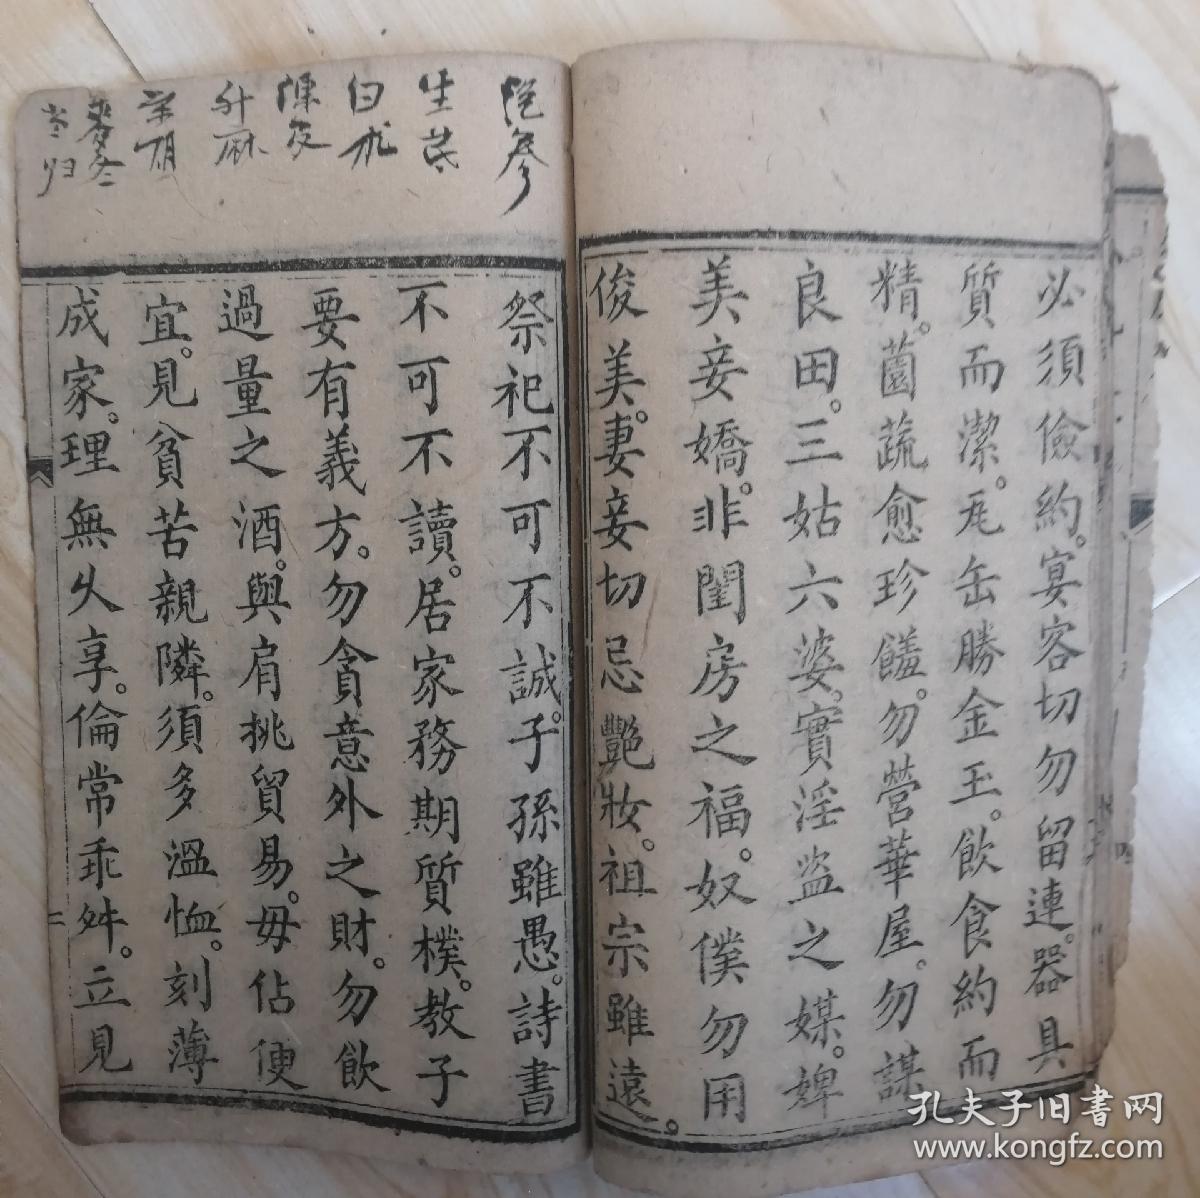 必須儉約。宴客切勿留連。器具
質而潔。瓦缶勝金玉。飲食約而
精。園蔬愈珍饈。勿營華屋。勿謀
良田。三姑六婆。實淫盜之媒。婢
美妾嬌。非閨房之福。奴僕勿用
俊美。妻妾切忌艷妝。祖宗雖遠。
祭祀不可不誠。子孫雖愚。詩書
不可不讀。居家務期質樸。教子
要有義方。勿貪意外之財。勿飲
過量之酒。與肩挑貿易。毋佔便
宜。見貧苦親隣。須多溫恤。刻薄
成家。理無久享。倫常乖舛。立見
二
生芪
白朮
陳皮
升麻
柴胡
麥冬
当归
孔夫子旧書网
www.kongfz.com